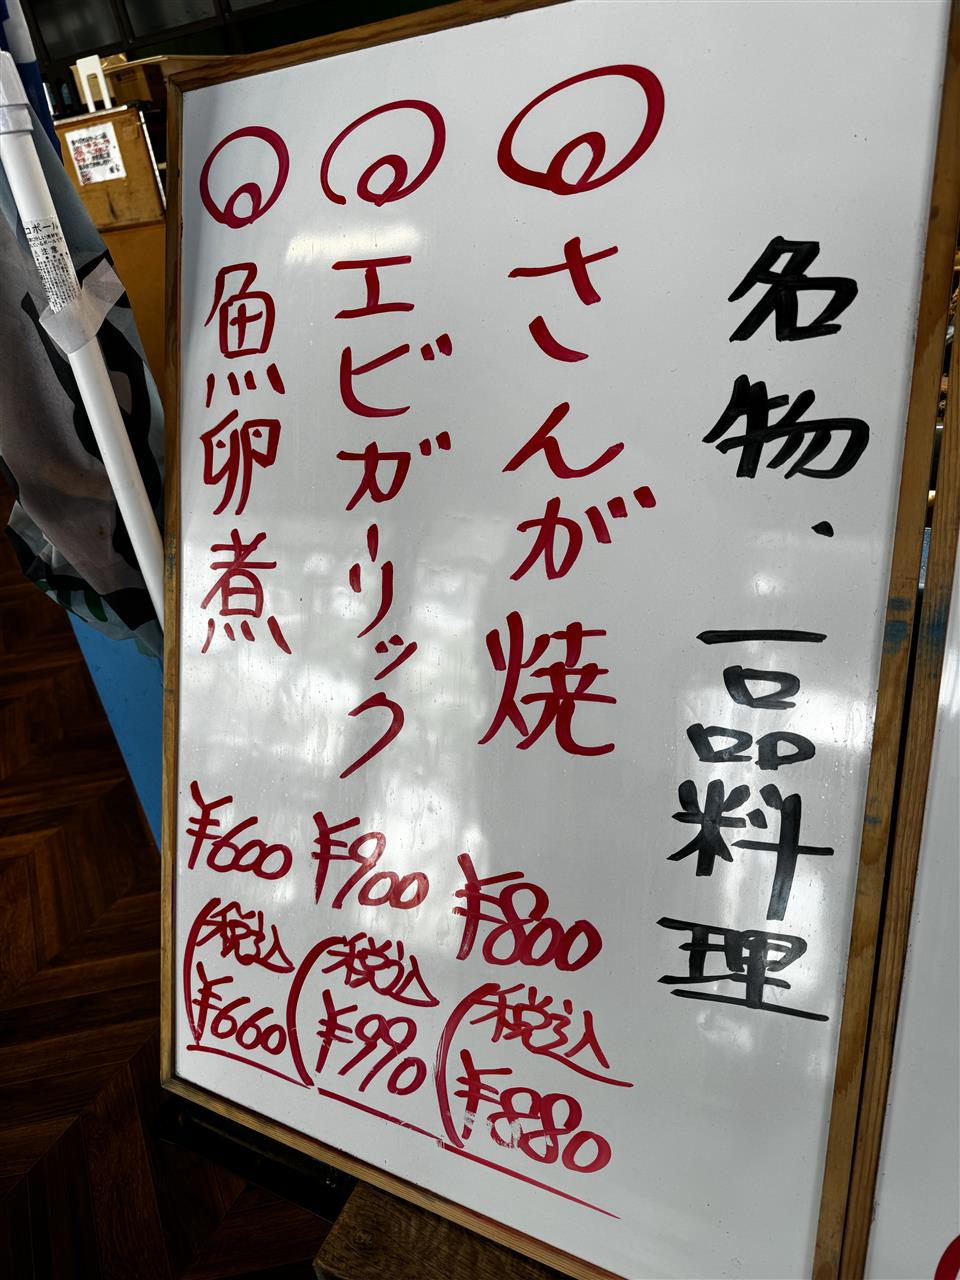 名物、一品料理
◎さんが焼
¥800
(税込
¥880
◎エビガーリック
¥900
(税込
¥990
◎魚卵煮
¥600
(税込
¥660
注意